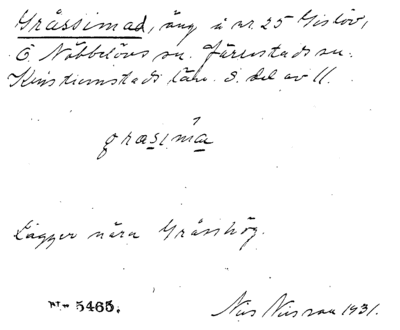 Gråssimad, äng å nr. 25 Gislöv,
Ö. Nöbbelövs sn. Järrestads hd.
Kristianstads län. S. del av 11.
grasíma
Ligger nära Gråsshög.
Nr - 5465.
Nils Nilsson 1931.